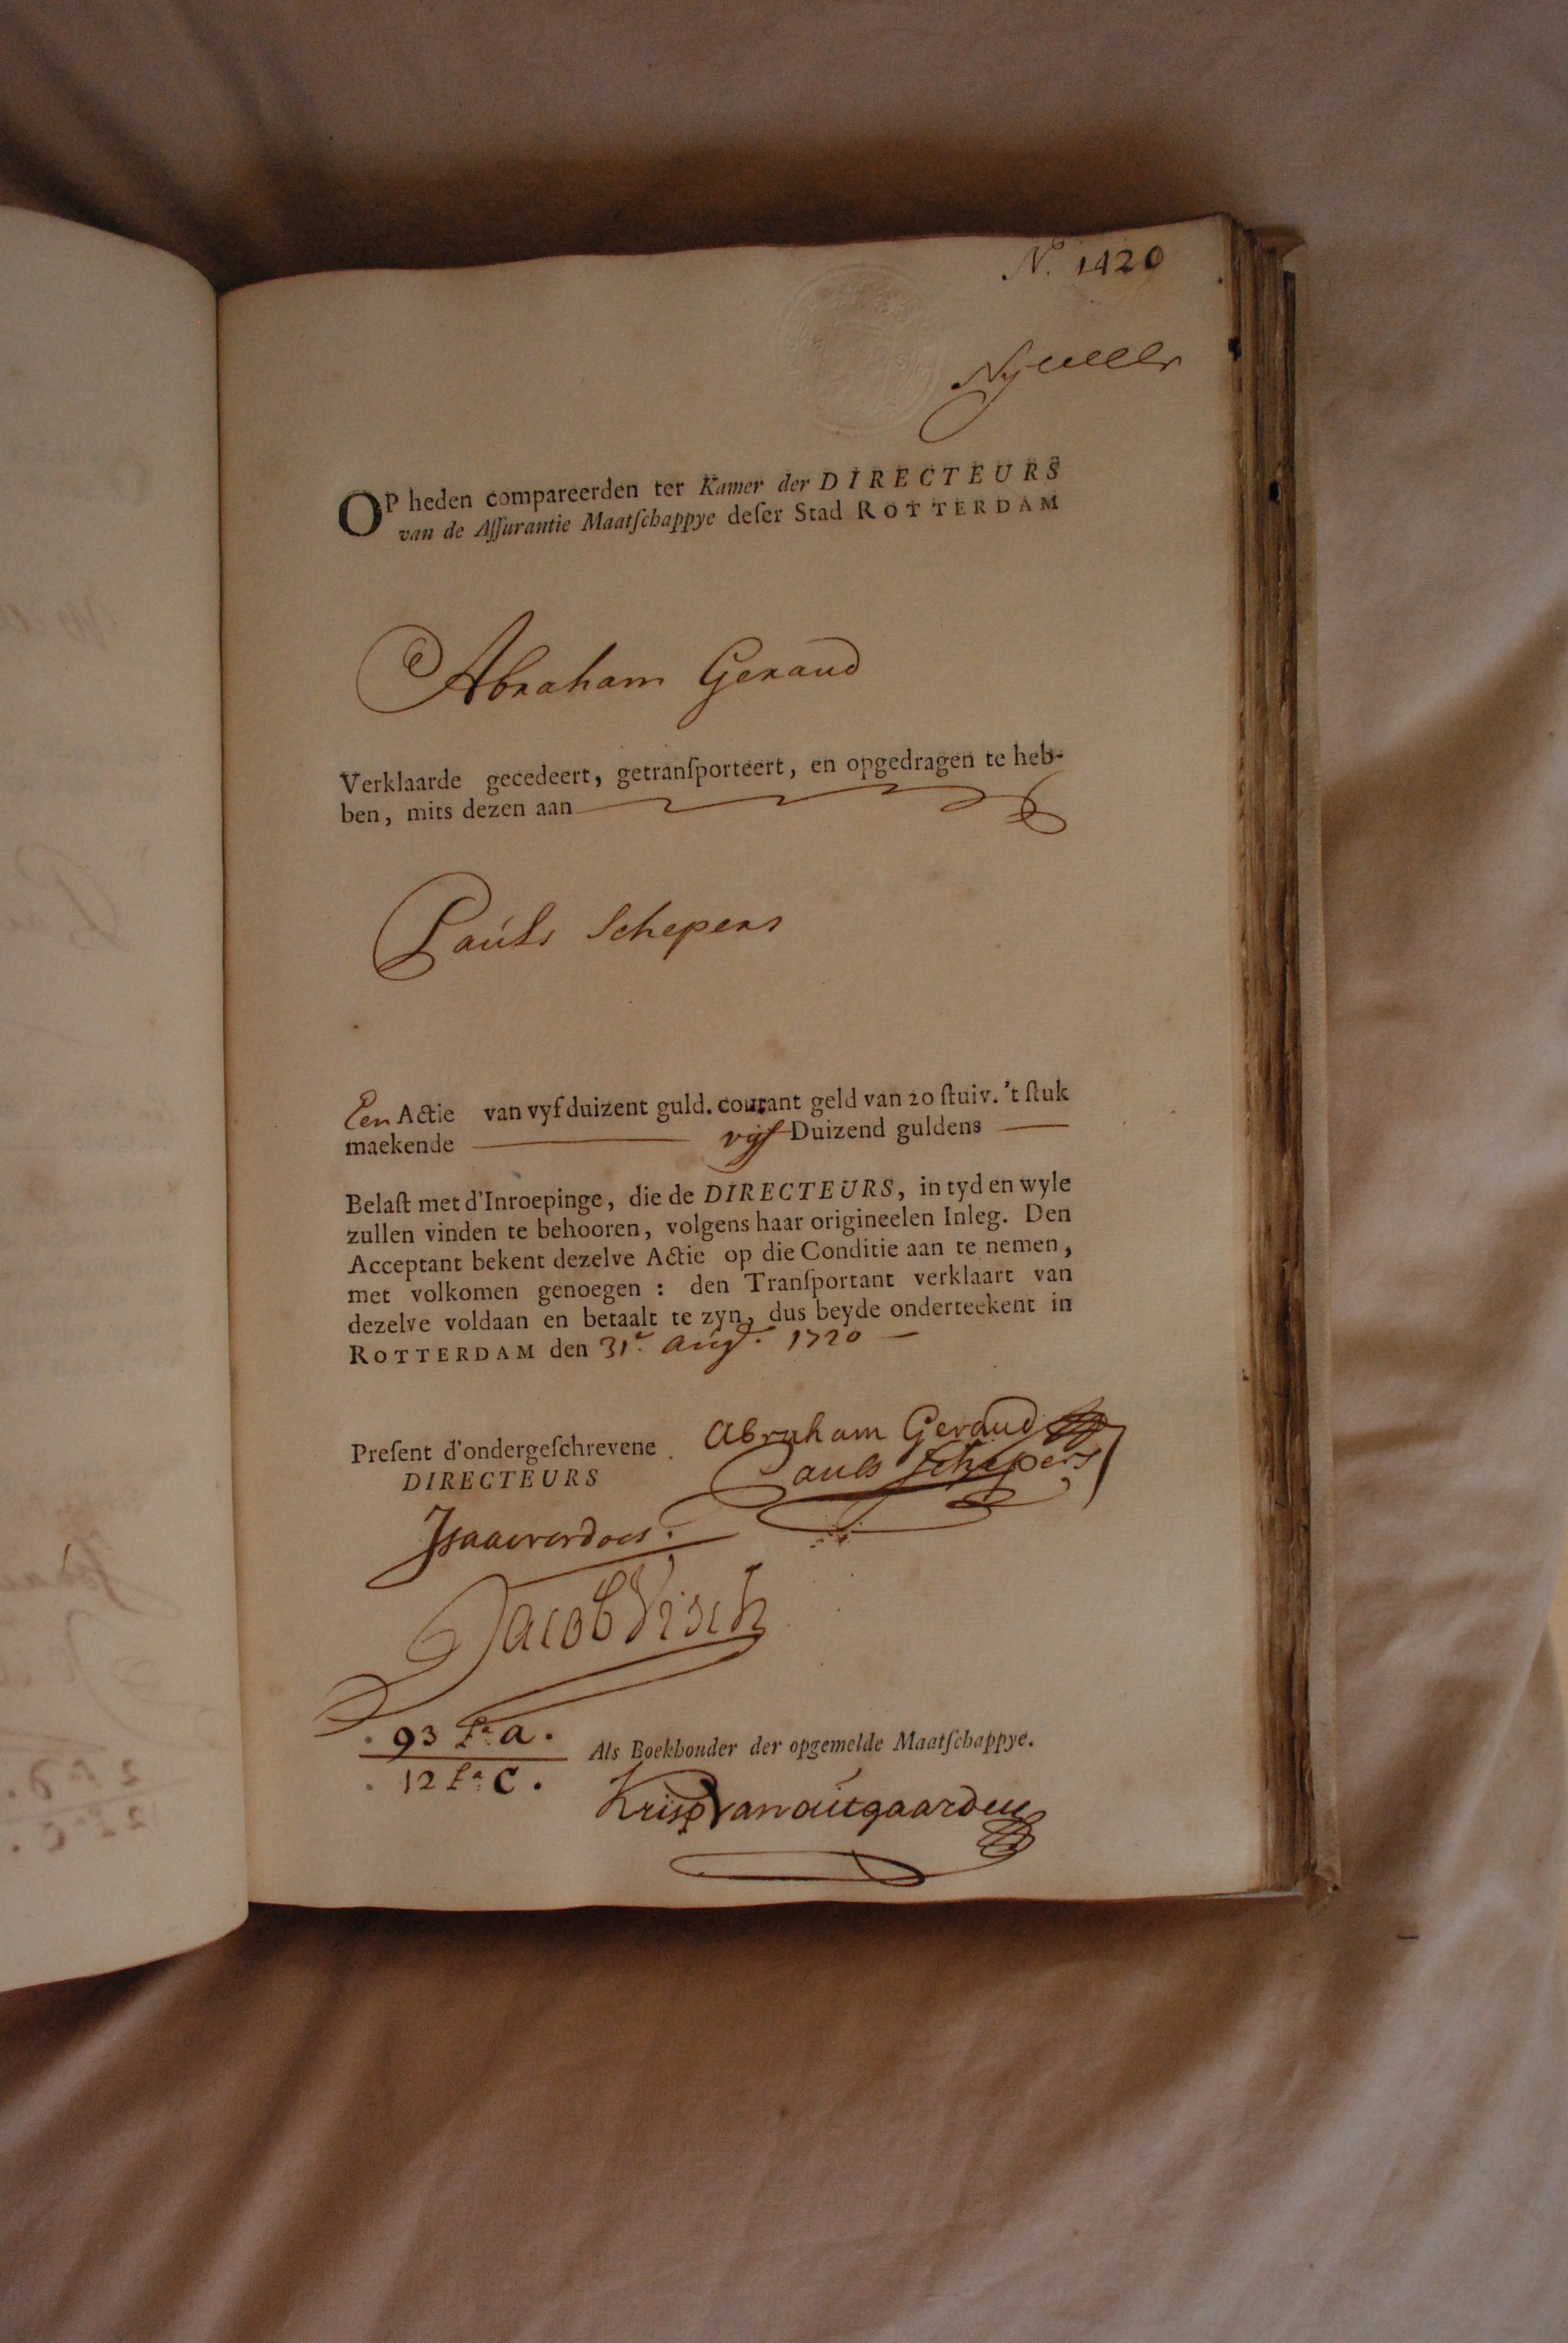 No. 1420
OP heden compareerden ter Kamer der DIRECTEURS
van de Aſſurantie Maatſchappye deſer Stad ROTTERDAM
Abraham Geraud
Verklaarde gecedeert, getranſporteert, en opgedragen te heb-
ben, mits dezen aan
Pauls Schepers
Een Actie van vyf duizent guld. courant geld van 20 ſtuiv. 't ſtuk
maekende vijf Duizend guldens
Belaſt met d'Inroepinge, die de DIRECTEURS, in tyd en wyle
zullen vinden te behooren, volgens haar origineelen Inleg. Den
Acceptant bekent dezelve Actie op die Conditie aan te nemen,
met volkomen genoegen : den Tranſportant verklaart van
dezelve voldaan en betaalt te zyn, dus beyde onderteekent in
ROTTERDAM den 31e. Aug. 1720
Preſent d'ondergeſchrevene Abraham Geraud
DIRECTEURS Pauls Schepers
Jacob Visch
93 fo. a.
12 fo. C.
Als Boekhouder der opgemelde Maatſchappye.